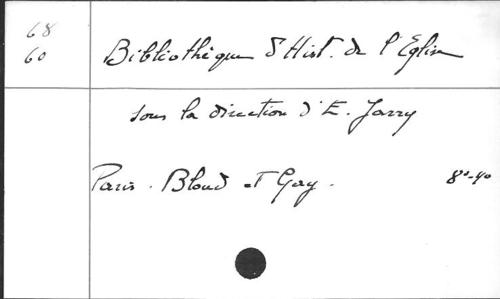 68
60
Bibliothèque d'Hist. de l'Eglise
sous la direction d'E. Jarry
Paris. Bloud et Gay. 8°-4°